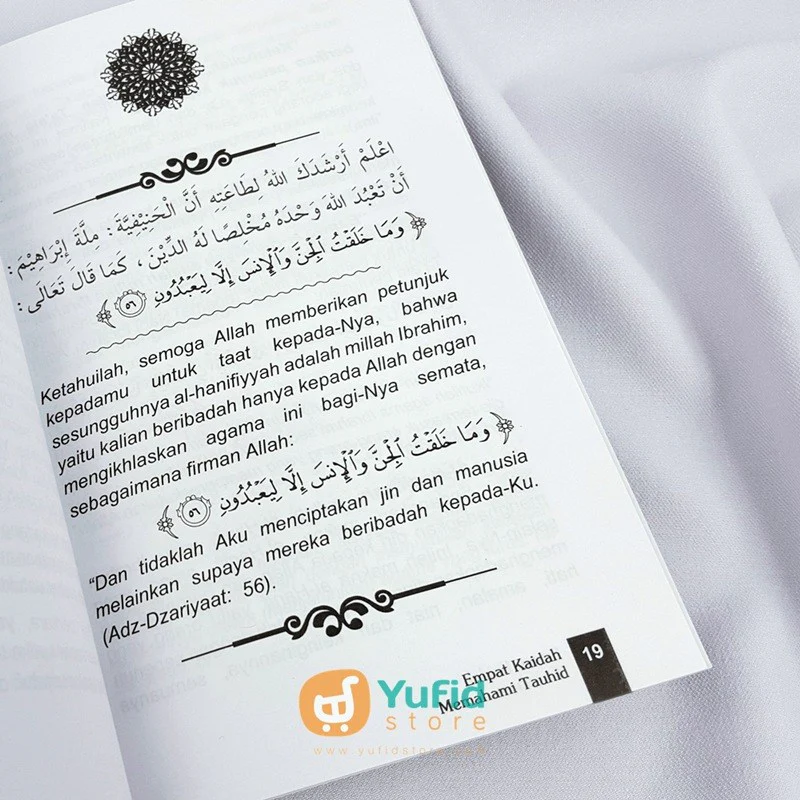 اعْلَمْ أَرْشَدَكَ اللهُ لِطَاعَتِهِ أَنَّ الْحَنِيْفِيَّةَ : مِلَّةَ إِبْرَاهِيْمَ :
أَنْ تَعْبُدَ اللهَ وَحْدَهُ مُخْلِصًا لَهُ الدِّيْنَ ، كَمَا قَالَ تَعَالَى :
﴿ وَمَا خَلَقْتُ ٱلْجِنَّ وَٱلْإِنسَ إِلَّا لِيَعْبُدُونِ ٥٦ ﴾
Ketahuilah, semoga Allah memberikan petunjuk
kepadamu untuk taat kepada-Nya, bahwa
sesungguhnya al-hanifiyyah adalah millah Ibrahim,
yaitu kalian beribadah hanya kepada Allah dengan
mengikhlaskan agama ini bagi-Nya semata,
sebagaimana firman Allah:
﴿ وَمَا خَلَقْتُ ٱلْجِنَّ وَٱلْإِنسَ إِلَّا لِيَعْبُدُونِ ٥٦ ﴾
“Dan tidaklah Aku menciptakan jin dan manusia
melainkan supaya mereka beribadah kepada-Ku.
(Adz-Dzariyaat: 56).
Empat Kaidah
Memahami Tauhid
19
Yufid
store